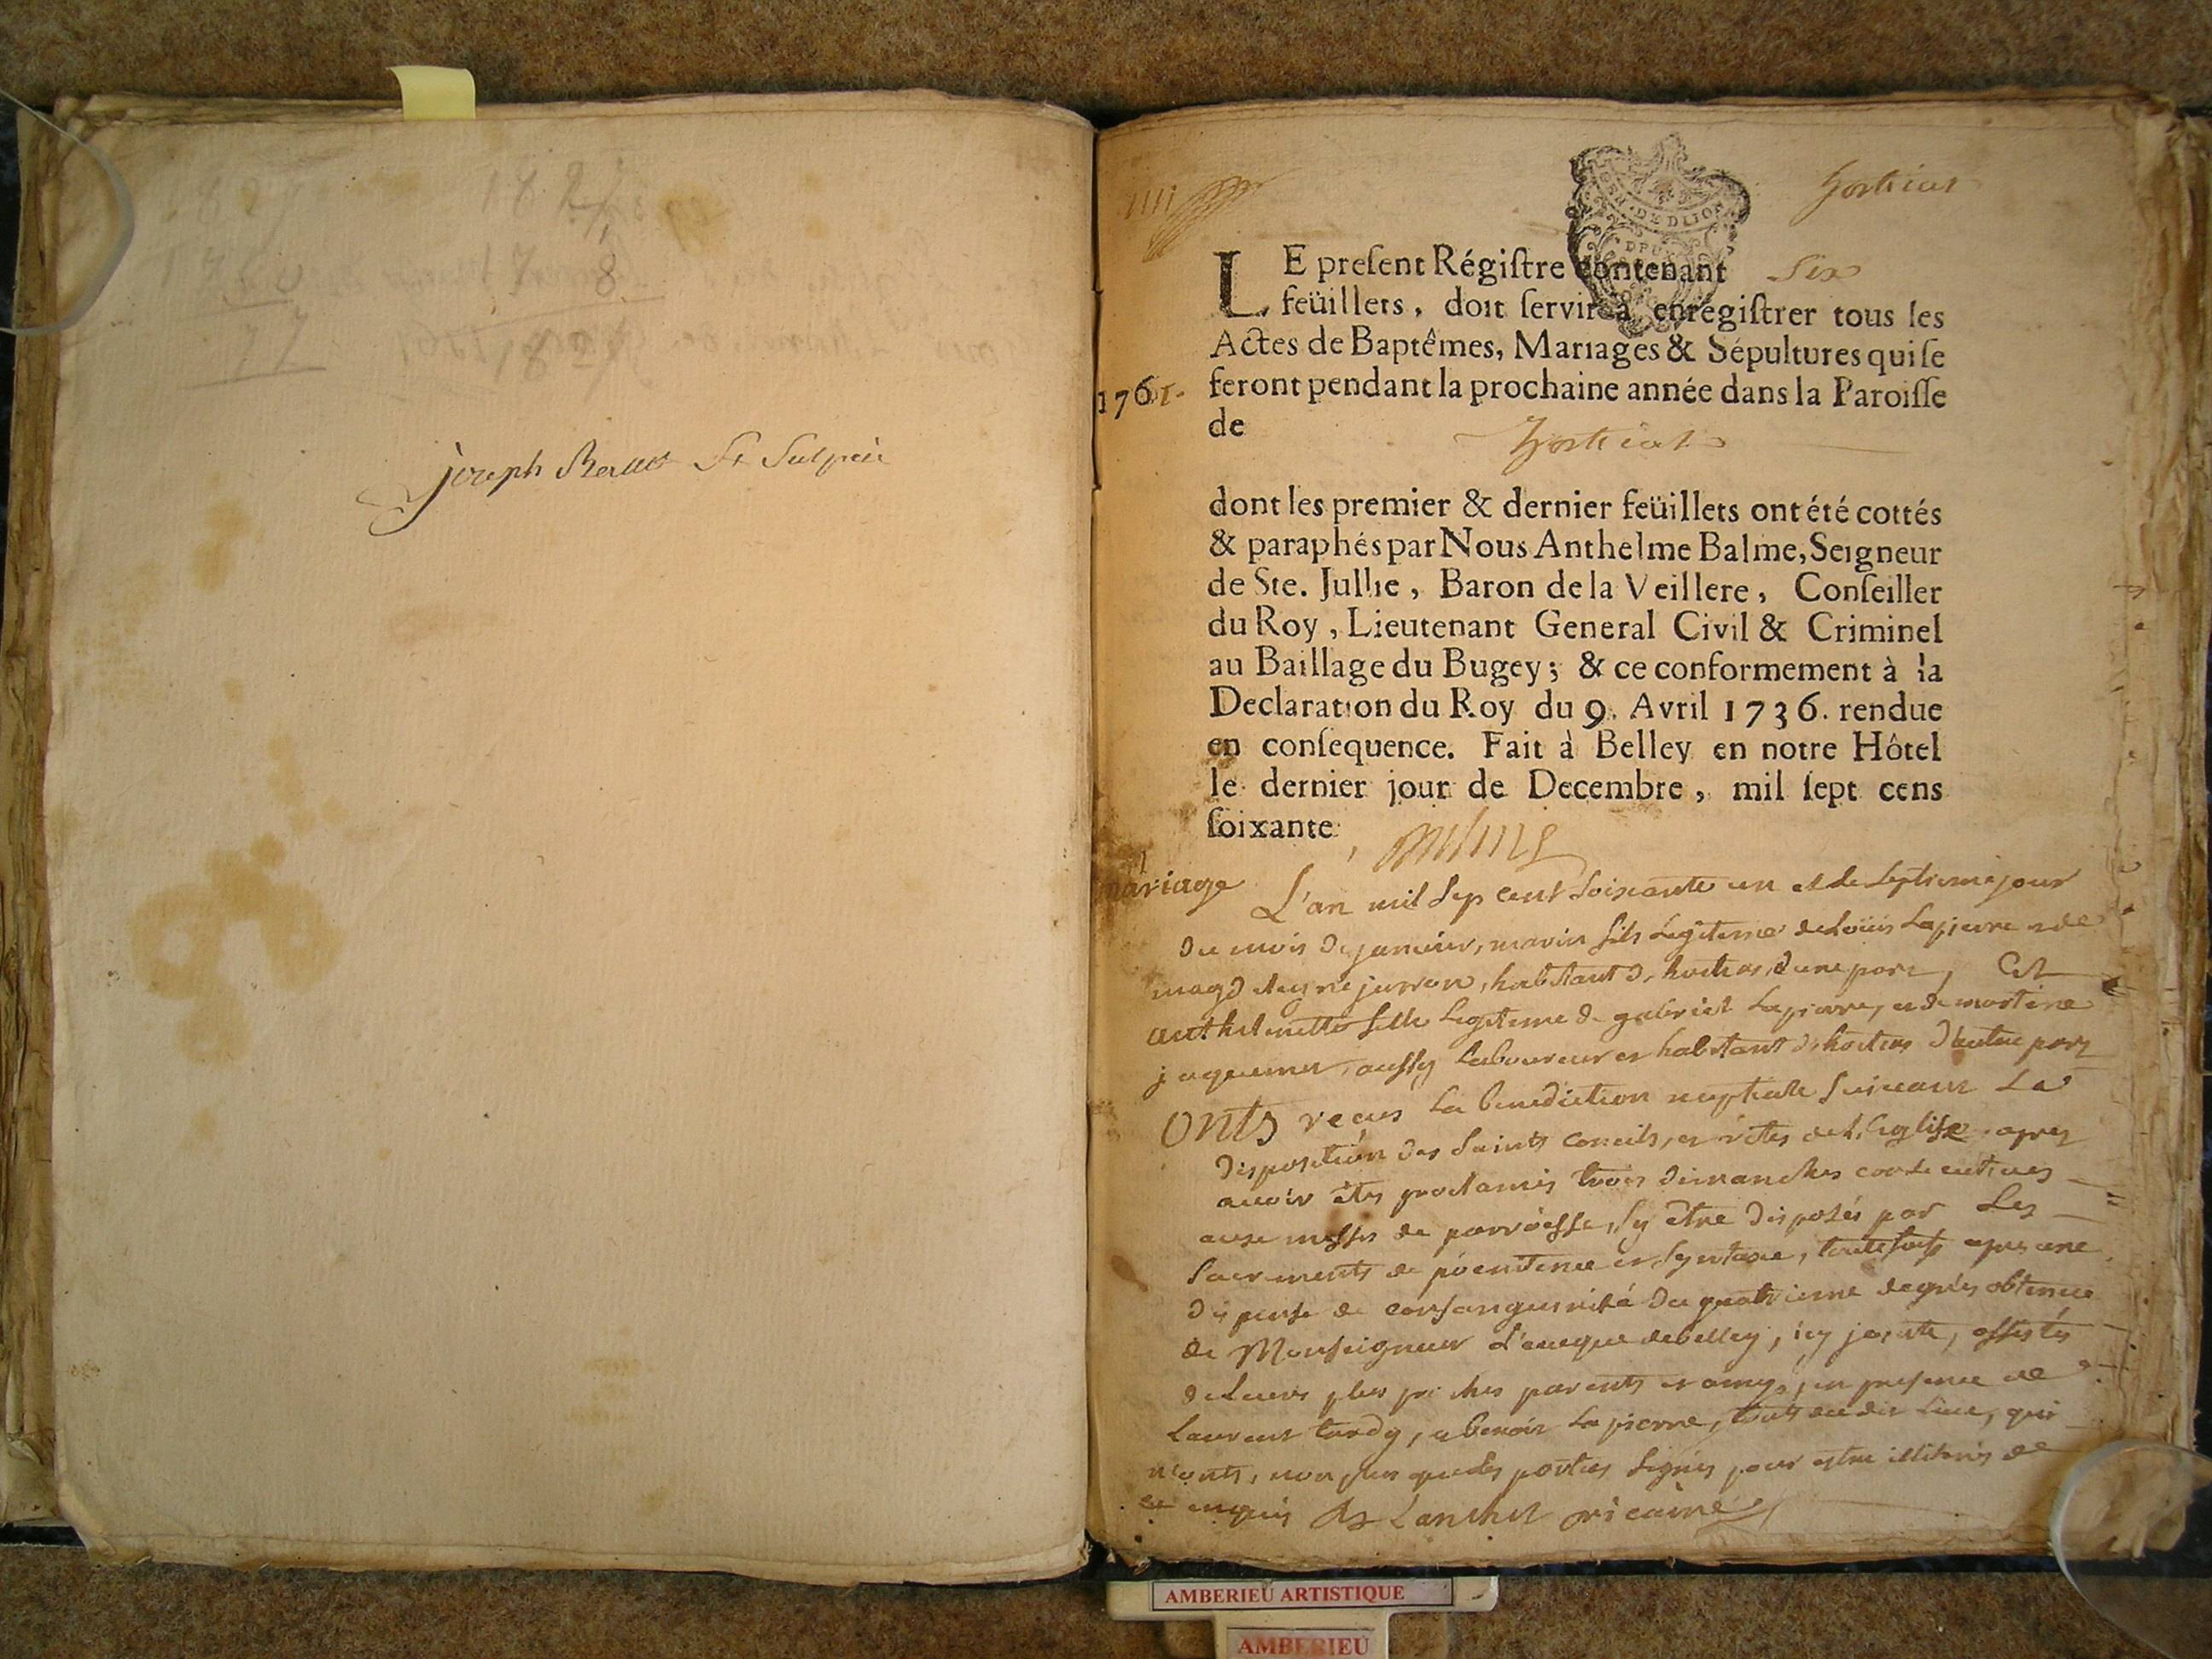 joseph St Sulpice
Hortias
LE preſent Régiſtre contenant Six
feüillets, doit ſervir à enrégiſtrer tous les
Actes de Baptêmes, Mariages & Sépultures qui ſe
1761. feront pendant la prochaine année dans la Paroiſſe
de Hortias
dont les premier & dernier feüillets ont été cottés
& paraphés par Nous Anthelme Balme, Seigneur
de Ste. Jullie, Baron de la Veillere, Conſeiller
du Roy, Lieutenant General Civil & Criminel
au Baillage du Bugey; & ce conformement à la
Declaration du Roy du 9. Avril 1736. rendue
en conſequence. Fait à Belley en notre Hôtel
le dernier jour de Decembre, mil ſept cens
ſoixante
mariage L'an mil sep cent soixante un et le septieme jour
du mois de janvier, marin fils legitime de Loüis Lapierre et de
habitant d'hortias, d'une part, Et
anthelmette fille legitime de gabriel Lapierre, et de martine
aussy laboureur et habitant d'hortias d'autre part
onts reçus la benediction nuptiale suivant la
disposition des saints concils, et rites de L'Eglise apres
avoir étés proclamés trois dimanches consecutives
aux messes de parroisse, sy être disposés par Les
sacrements de pœnitence et toutefois apres une
dispense de consanguinité du quatrieme degrés obtenue
de Monseigneur L'eveque de belley, icy jointe, assistés
de Leurs plus proches parents et amys, en presence de
Laurent tardy, et benoit Lapierre, touts du dit Lieu, qui
n'onts, non plus que les parties signés pour estre illiterés de
ce enquis vicaire
AMBERIEU ARTISTIQUE
AMBERIEU